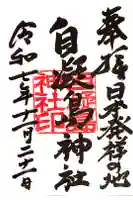 奉拝 日本発祥の地
自凝島神社
令和七年十一月二十一日